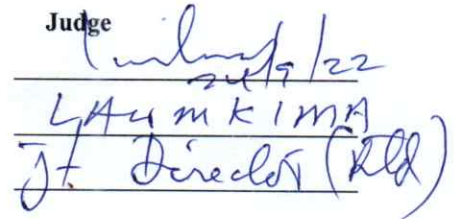 Judge
24/9/22
LALUMKIMA
Jt. Director (Rtd)